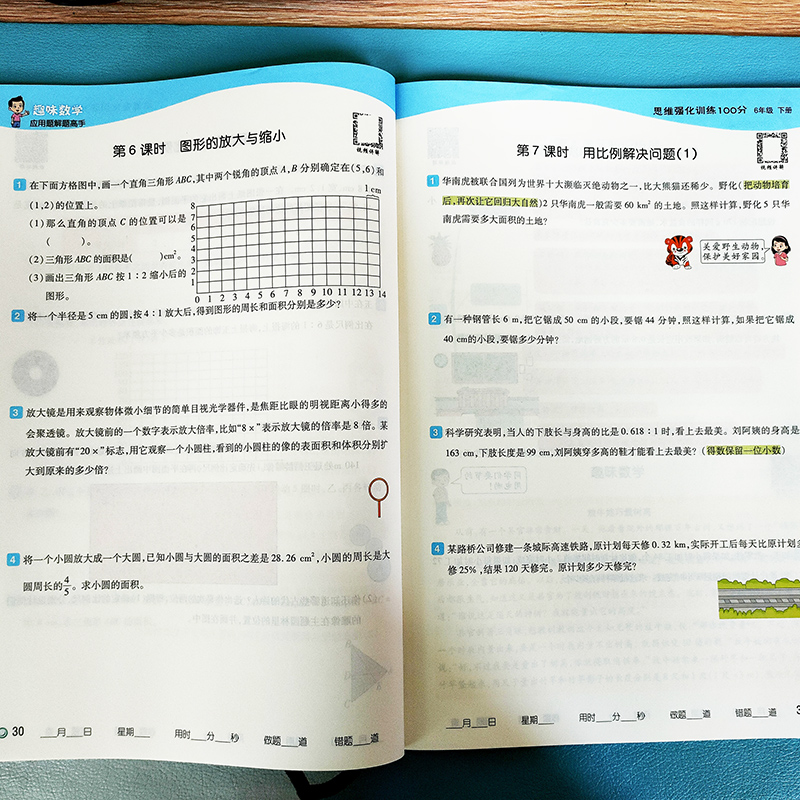 趣味数学
应用题解题高手
第6课时 图形的放大与缩小
视频讲解
1 在下面方格图中,画一个直角三角形ABC,其中两个锐角的顶点A,B分别确定在(5,6)和
(1,2)的位置上。
1 cm
(1)那么直角的顶点C的位置可以是
( )。
(2)三角形ABC的面积是( )cm²。
(3)画出三角形ABC按1:2缩小后的
图形。
8
7
6
5
4
3
2
1
0 1 2 3 4 5 6 7 8 9 10 11 12 13 14
2 将一个半径是5 cm的圆,按4:1放大后,得到图形的周长和面积分别是多少?
3 放大镜是用来观察物体微小细节的简单目视光学器件,是焦距比眼的明视距离小得多的
会聚透镜。放大镜前的一个数字表示放大倍率,比如“8×”表示放大镜的倍率是8倍。某
放大镜前有“20×”标志,用它观察一个小圆柱,看到的小圆柱的像的表面积和体积分别扩
大到原来的多少倍?
4 将一个小圆放大成一个大圆,已知小圆与大圆的面积之差是28.26 cm²,小圆的周长是大
圆周长的4/5。求小圆的面积。
30 月 日 星期 用时 分 秒 做题 道 错题 道
思维强化训练100分 6年级 下册
第7课时 用比例解决问题(1)
视频讲解
1 华南虎被联合国列为世界十大濒临灭绝动物之一,比大熊猫还稀少。野化(把动物培育
后,再次让它回归大自然)2只华南虎一般需要60 km²的土地。照这样计算,野化5只华
南虎需要多大面积的土地?
关爱野生动物,
保护美好家园。
2 有一种钢管长6 m,把它锯成50 cm的小段,要锯44分钟,照这样计算,如果把它锯成
40 cm的小段,要锯多少分钟?
3 科学研究表明,当人的下肢长与身高的比是0.618:1时,看上去最美。刘阿姨的身高是
163 cm,下肢长度是99 cm,刘阿姨穿多高的鞋才能看上去最美?(得数保留一位小数)
4 某路桥公司修建一条城际高速铁路,原计划每天修0.32 km,实际开工后每天比原计划多
修25%,结果120天修完。原计划多少天修完?
月 日 星期 用时 分 秒 做题 道 错题 道